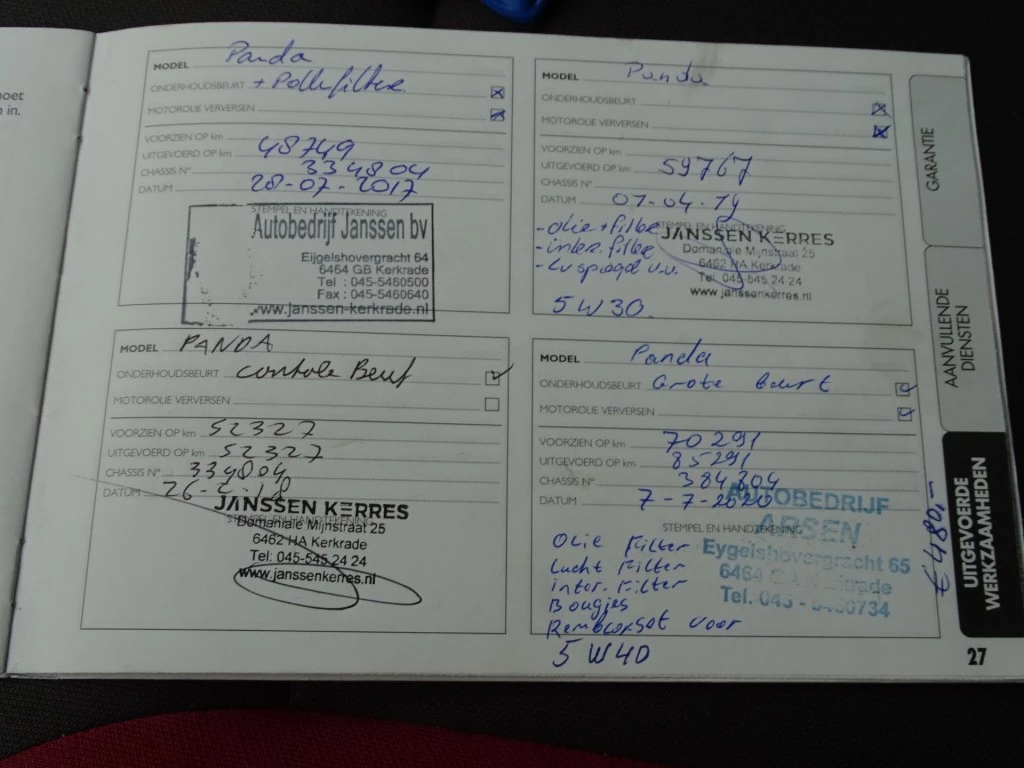 oet
in.
MODEL Panda
ONDERHOUDSBEURT + Pollenfilter
MOTOROLIE VERVERSEN
VOORZIEN OP km
UITGEVOERD OP km 48749
CHASSIS N° 334804
DATUM 28-07-2017
STEMPEL EN HANDTEKENING
Autobedrijf Janssen bv
Eijgelshovergracht 64
6464 GB Kerkrade
Tel : 045-5460500
Fax : 045-5460640
www.janssen-kerkrade.nl
MODEL PANDA
ONDERHOUDSBEURT controle Beurt
MOTOROLIE VERVERSEN
VOORZIEN OP km 52327
UITGEVOERD OP km 52327
CHASSIS N° 334804
DATUM
STEMPEL EN HANDTEKENING
JANSSEN KERRES
Domaniale Mijnstraat 25
6462 HA Kerkrade
Tel: 045-545 24 24
www.janssenkerres.nl
MODEL Panda
ONDERHOUDSBEURT
MOTOROLIE VERVERSEN
VOORZIEN OP km
UITGEVOERD OP km 59767
CHASSIS N°
DATUM 07-04-19
STEMPEL EN HANDTEKENING
- olie + filter
- inter. filter
- Lv spiegel v.v.
5W30
JANSSEN KERRES
Domaniale Mijnstraat 25
6462 HA Kerkrade
Tel. 045-545 24 24
www.janssenkerres.nl
MODEL Panda
ONDERHOUDSBEURT Grote beurt
MOTOROLIE VERVERSEN
VOORZIEN OP km 70291
UITGEVOERD OP km 85291
CHASSIS N° 384804
DATUM 7-7-2020
STEMPEL EN HANDTEKENING
Olie Filter
Lucht Filter
Inter. Filter
Bougies
Remblokset voor
5W40
AUTOBEDRIJF
ARSEN
Eygelshovergracht 65
6464 Kerkrade
Tel. 045 - 5460734
€ 480,-
GARANTIE
AANVULLENDE
DIENSTEN
UITGEVOERDE
WERKZAAMHEDEN
27